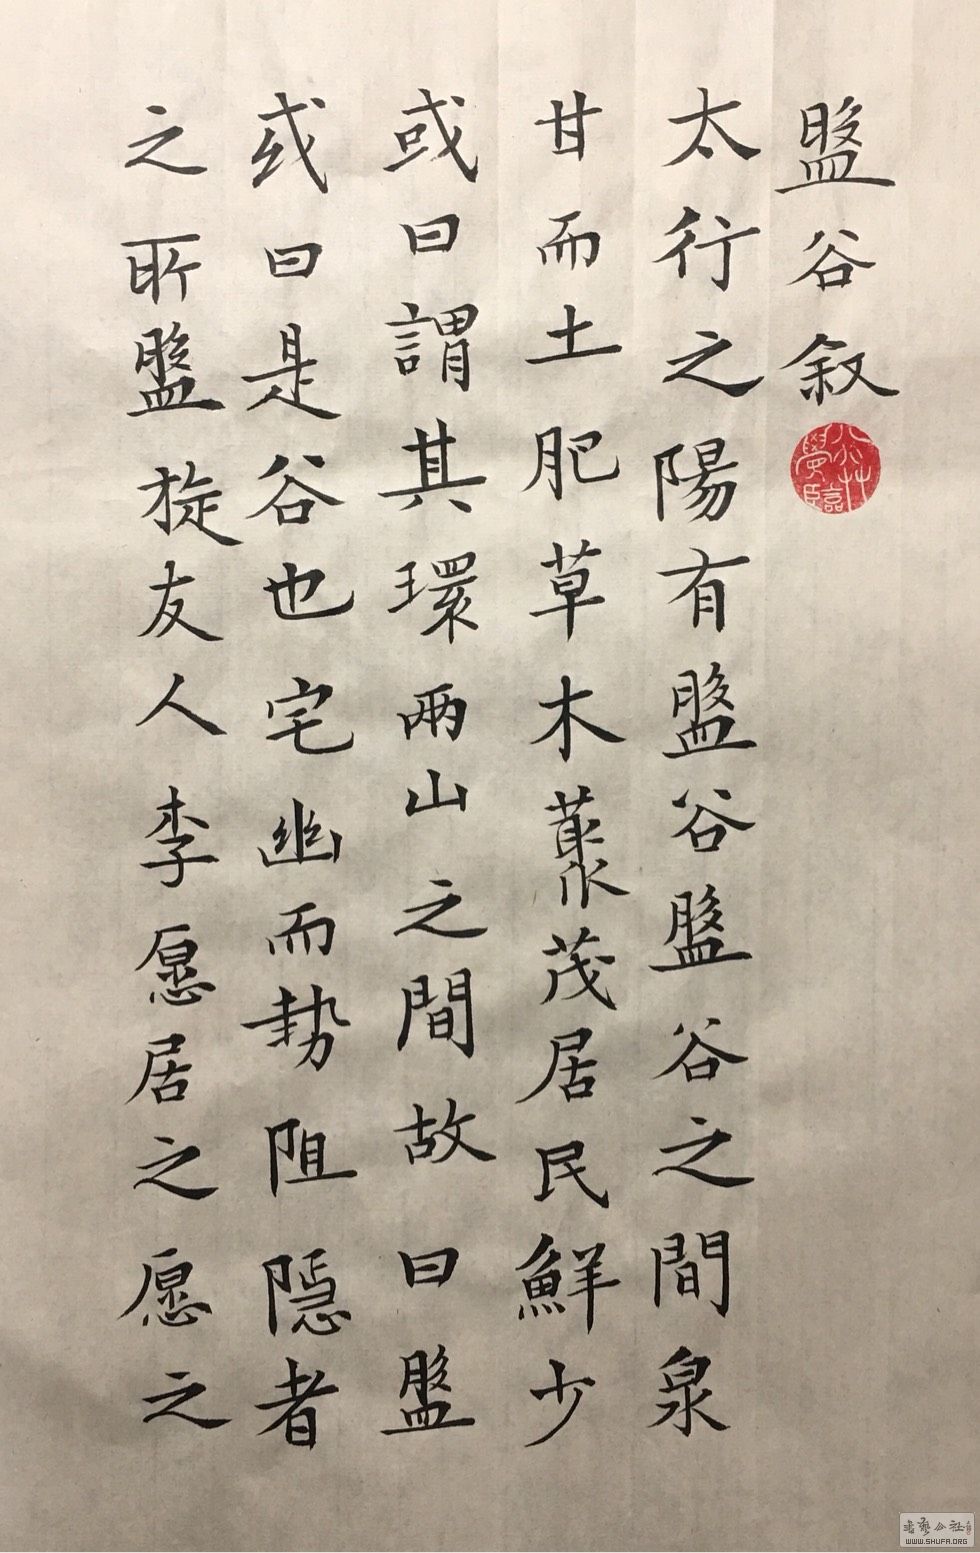 盤谷敘
太行之陽有盤谷盤谷之間泉
甘而土肥草木藂茂居民鮮少
或曰謂其環兩山之間故曰盤
或曰是谷也宅幽而勢阻隱者
之所盤旋友人李愿居之愿之
WWW.SHUFA.ORG